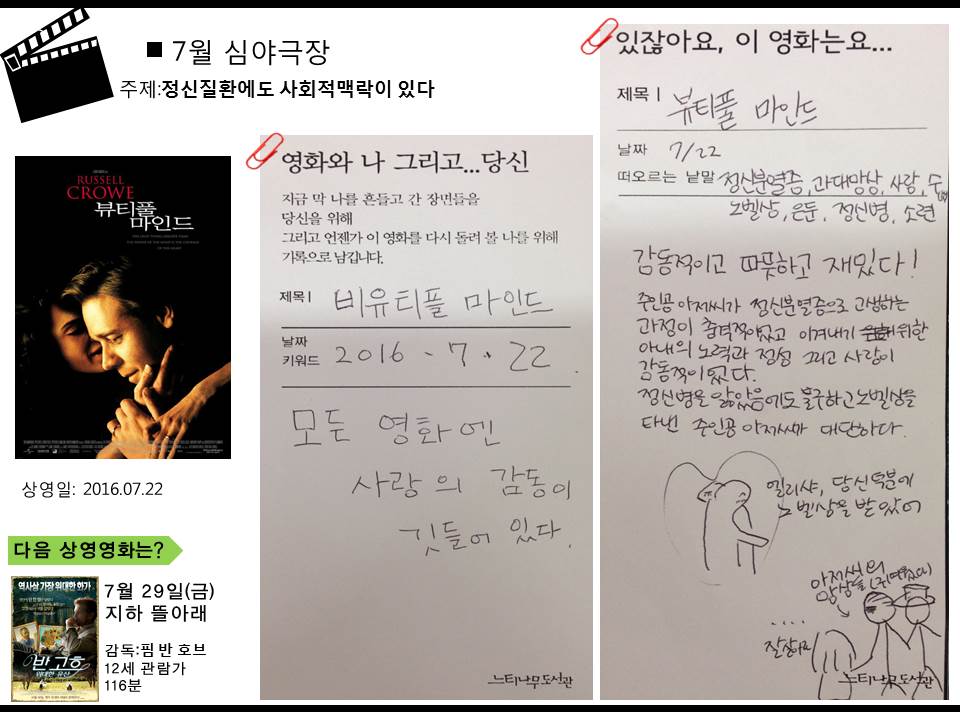 ■ 7월 심야극장
주제:정신질환에도 사회적맥락이 있다
RUSSELL
CROWE
뷰티풀
마인드
상영일: 2016.07.22
다음 상영영화는?
역사상 가장 위대한 화가
반 고흐
위대한 유산
7월 29일(금)
지하 뜰아래
감독:핌 반 호브
12세 관람가
116분
영화와 나 그리고...당신
지금 막 나를 흔들고 간 장면들을
당신을 위해
그리고 언젠가 이 영화를 다시 돌려 볼 나를 위해
기록으로 남깁니다.
제목 | 비유티풀 마인드
날짜
키워드 2016 . 7 . 22 .
모든 영화엔
사랑의 감동이
깃들어 있다.
느티나무도서관
있잖아요, 이 영화는요...
제목 | 뷰티풀 마인드
날짜 7/22
떠오르는 낱말 정신분열증, 과대망상, 사랑, 수
노벨상, 은둔, 정신병, 소련
감동적이고 따뜻하고 재밌다!
주인공 아저씨가 정신분열증으로 고생하는
과정이 충격적이었고 이겨내기 위한
아내의 노력과 정성 그리고 사랑이
감동적이었다.
정신병을 앓았음에도 불구하고 노벨상을
타낸 주인공 아저씨가 대단하다.
엘리샤, 당신 덕분에
노벨상을 받았어
아저씨의
망상들
....
잘살아
느티나무도서관